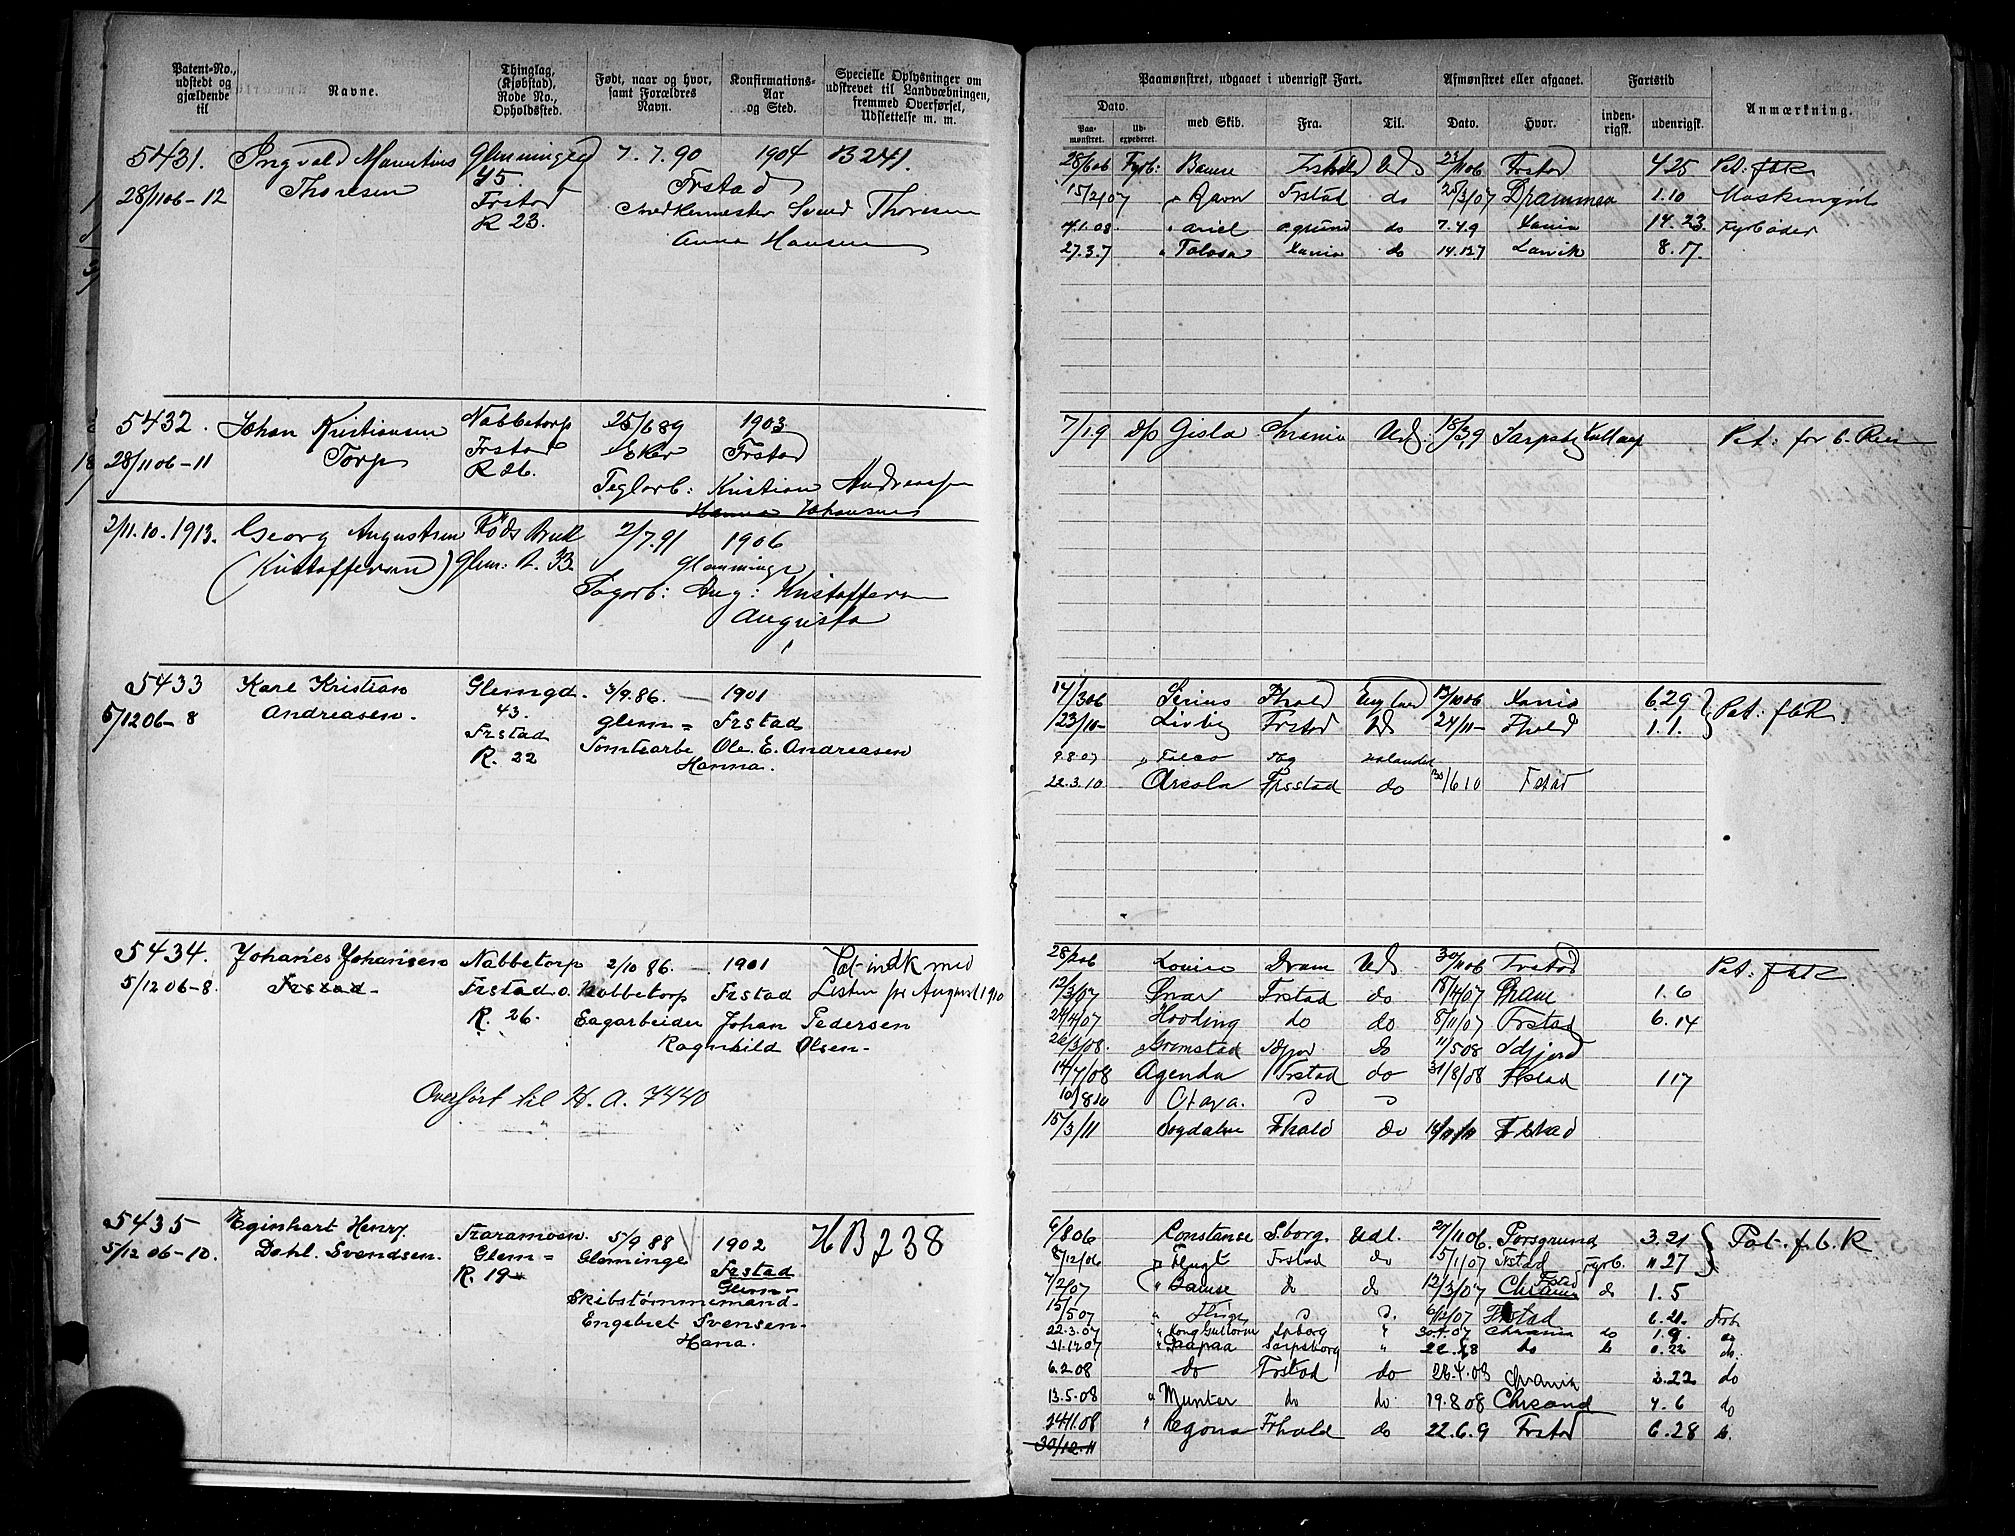 Patent-No., udstedt og gjældende til
Navne.
Thinglag, (Kjøbstad), Rode No., Opholdssted.
Født, naar og hvor, samt Forældres Navn.
Konfirmations-Aar og Sted.
Specielle Oplysninger om udskrevet til Landvæbningen, fremmed Overførsel, Udslettelse m. m.
Paamønstret, udgaaet i udenrigsk Fart.
Dato.
Paa-mønstret.
Ud-expederet.
med Skib.
Fra.
Til.
Afmønstret eller afgaaet.
Dato.
Hvor.
Fartstid
inden-rigsk.
udenrigsk.
Anmærkning.
5431. Ingvald Mauritius 7.7.90 1904 B 241.
28/11 06-12 Thoresen 45. Frstad
Frstad Svend Thoresen
R 23. Anna Hansen
28/6 06 Fyrb: Bamse Frstad Ud 23/11 06 Frstad 4.25 Pat: f b R
15/2 07 " Ravn Frstad do 25/3 07 Drammen 1.10
4.1.08 " Ariel do 7.4.9 Xania 14.23 Fyrbøder
27.3.7 " Tolosa Xania do Larvik 8.17.
5432. Johan Kristiansen Nabbetorp 25/6 89 1903
28/11 06-11 Torp Frstad Frstad
R 26. Teglarb: Kristian Andreasen
Hanna Johansen
7/1 9 D/p Gisla Chrania Ud. 18/3 9 Sarpsbg Pat: for b.
2/11.10.1913. Georg Augustsen Røds Bruk 2/7.91 1906
(Kristoffersen) Glem: R. 33. Glemminge
Sagarb: Aug: Kristoffersen
Augusta
5433 Karl Kristian Glemgd. 3/9.86. — 1901
5/12 06-8 Andreasen. 43. Glem= Frstad
Frstad Tomtearbe Ole. E. Andreasen
R. 22 Hanna.
14/3 06 Sirius Fhald England 13/10 06 Xania 6.29 Pat: f b R.
23/10- Livlig Frstad Ud 24/11- Fhald 1.1.
9.8.07 " Falco Holanded
22.3.10 Ursola Frsstad do 30/6 10 Fstad
5434. Johanes Johansen Nabbetorp 2/10 86. — 1901 Pat-indk med
5/12 06-8. Frstad- Frstad o. Nabbetorp Frstad Listen for August 1910
R. 26. Sagarbeider Johan Pedersen
Ragnhild Olsen-
Overført til H. A. 7440
Louise Dram Ud 30/11 06 Frstad Pat: f b R.
12/3/07 Snar Frstad do 18/4/07 Dram 1.6
29/4/07 Hovding do do 8/11/07 Frstad 6.14
26/3/08. Grimstad do 11/5 08
14/7/08 Agenda Frstad do 31/8/08 Frstad 1 17
10/8 10 Otava.
15/3/11 Sogdalen Fhald do Fstad
5435 Eginhart Henry. Traramoen. 5/9 88 1902 HB 238
5/12 06-10. Dahl. Svendsen. Glem= Gleminge Frstad
R. 19 Glem-
Skibstømmemand-
Engebret Svensen-
Hana.
6/8 06 Constanse Sborg. Udl. 27/11 06. Porsgrund 3.21 Pat. f. b. R
8/12/06 Frstad do 5/1/07 Fstad Fyrb. " 27
7/2/07 " Bamse do do 12/3/07 Frstad Chrania do 1.5
15/5 07 " 6/12/07 Frstad 6.21. Frb
22.3.07 " Kong Guttorm Spborg " 30.4.07 Chrania do 1.9. do
31.12 07 " Paapaa Sarpsborg " do 0.22 do.
6.2.08 do Frstad do 26.4.08 Chrania 2.22 do
13.5.08 " Munter do do 19.8.08 Chrsand 4.6 do
24.11.08 " Regona Frhald do 22.6.9 Frstad 6.28 do.
30/12.11